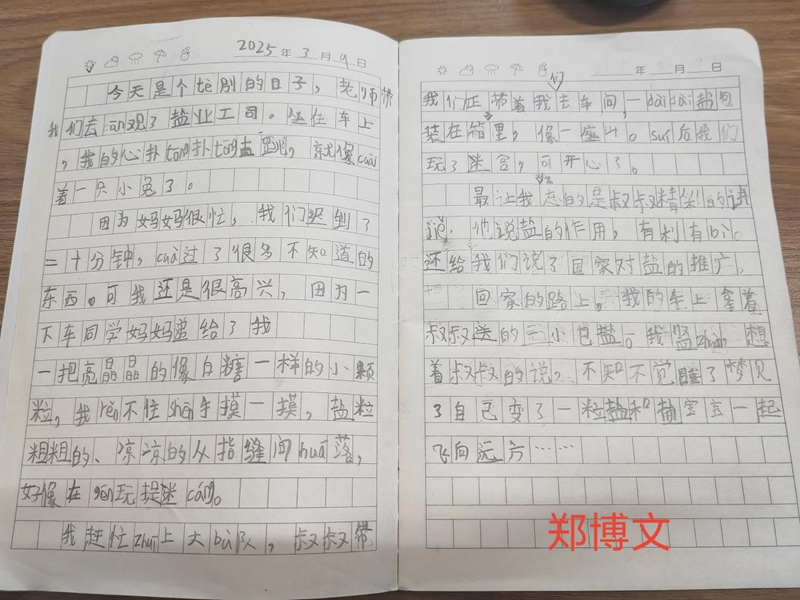 2025年3月9日
今天是个tè别的日子，老师带
我们去cān观了盐业工司。坐在车上
，我的心扑tōng扑tōng直跳，就像cuāi
着一只小兔了。
因为妈妈很忙，我们迟到了
二十分钟，cuò过了很多不知道的
东西。可我还是很高兴，因为一
下车同学妈妈递给了我
一把亮晶晶的像白糖一样的小颗
粒，我rěn不住shēn手摸一摸，盐粒
粗粗的、凉凉的从指缝间huá落，
好像在gēn玩捉迷cáng。
我赶忙zhuī上大bù队，叔叔带
年月日
们
我们正带着我去车间，一dài dài盐包
装在箱里，像一座山。suí后我们
玩了迷宫，可开心了。
最让我忘的是叔叔精彩的讲
说，他说盐的作用，有利有bì，
还给我们说了国家对盐的推广。
回家的路上，我的车上拿着
叔叔送的三小包盐。我想
着叔叔的说，不知不觉睡了梦见
了自己变了一粒盐和一起
飞向远方……
郑博文